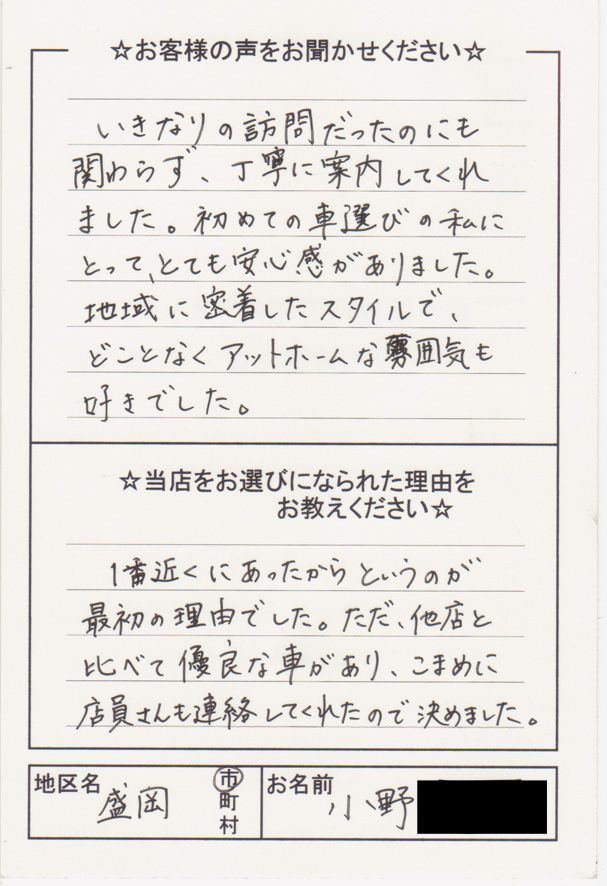 ☆お客様の声をお聞かせください☆
いきなりの訪問だったのにも
関わらず、丁寧に案内してくれ
ました。初めての車選びの私に
とって、とても安心感がありました。
地域に密着したスタイルで、
どことなくアットホームな雰囲気も
好きでした。
☆当店をお選びになられた理由を
お教えください☆
1番近くにあったからというのが
最初の理由でした。ただ、他店と
比べて優良な車があり、こまめに
店員さんも連絡してくれたので決めました。
地区名 盛岡 市 町 村 お名前 小野